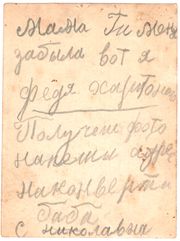 Мама Ти меня
забыла вот я
федя харитонов
Получеш фото
напеши адрес
на конверти
баба
с николавна